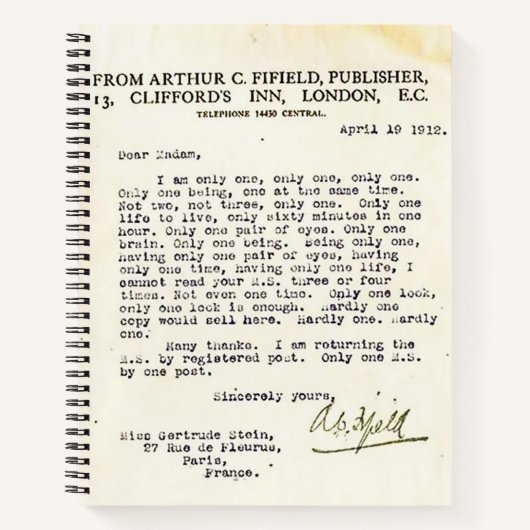 FROM ARTHUR C. FIFIELD, PUBLISHER,
13, CLIFFORD'S INN, LONDON, E.C.
TELEPHONE 14430 CENTRAL.
April 19 1912.
Dear Madam,
I am only one, only one, only one.
Only one being, one at the same time.
Not two, not three, only one. Only one
life to live, only sixty minutes in one
hour. Only one pair of eyes. Only one
brain. Only one being. Being only one,
having only one pair of eyes, having
only one time, having only one life, I
cannot read your M.S. three or four
times. Not even one time. Only one look,
only one look is enough. Hardly one
copy would sell here. Hardly one. Hardly
one.
Many thanks. I am returning the
M.S. by registered post. Only one M.S.
by one post.
Sincerely yours,
A. C. Fifield
Miss Gertrude Stein,
27 Rue de Fleurus,
Paris,
France.